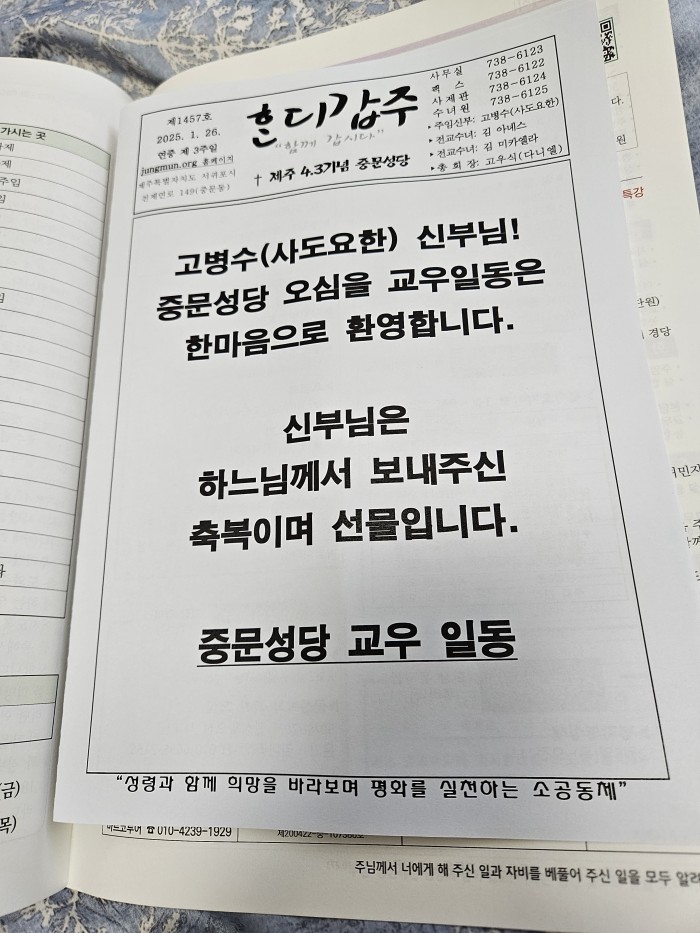 제1457호
2025. 1. 26.
연중 제 3주일
jungmun.org 홈페이지
제주특별자치도 서귀포시
천제연로 149(중문동)
흔디갑주
"함께 갑시다"
† 제주 4.3기념 중문성당
사무실 738-6123
팩 스 738-6122
사제관 738-6124
수녀원 738-6125
▸주임신부: 고병수(사도요한)
▸전교수녀: 김 아녜스
▸전교수녀: 김 미카엘라
▸총 회 장: 고우식(다니엘)
고병수(사도요한) 신부님!
중문성당 오심을 교우일동은
한마음으로 환영합니다.
신부님은
하느님께서 보내주신
축복이며 선물입니다.
중문성당 교우 일동
"성령과 함께 희망을 바라보며 평화를 실천하는 소공동체"
가시는 곳
주임
(금)
목)
☎ 010-4239-1929
특강
경당
주님께서 너에게 해 주신 일과 자비를 베풀어 주신 일을 모두 알려